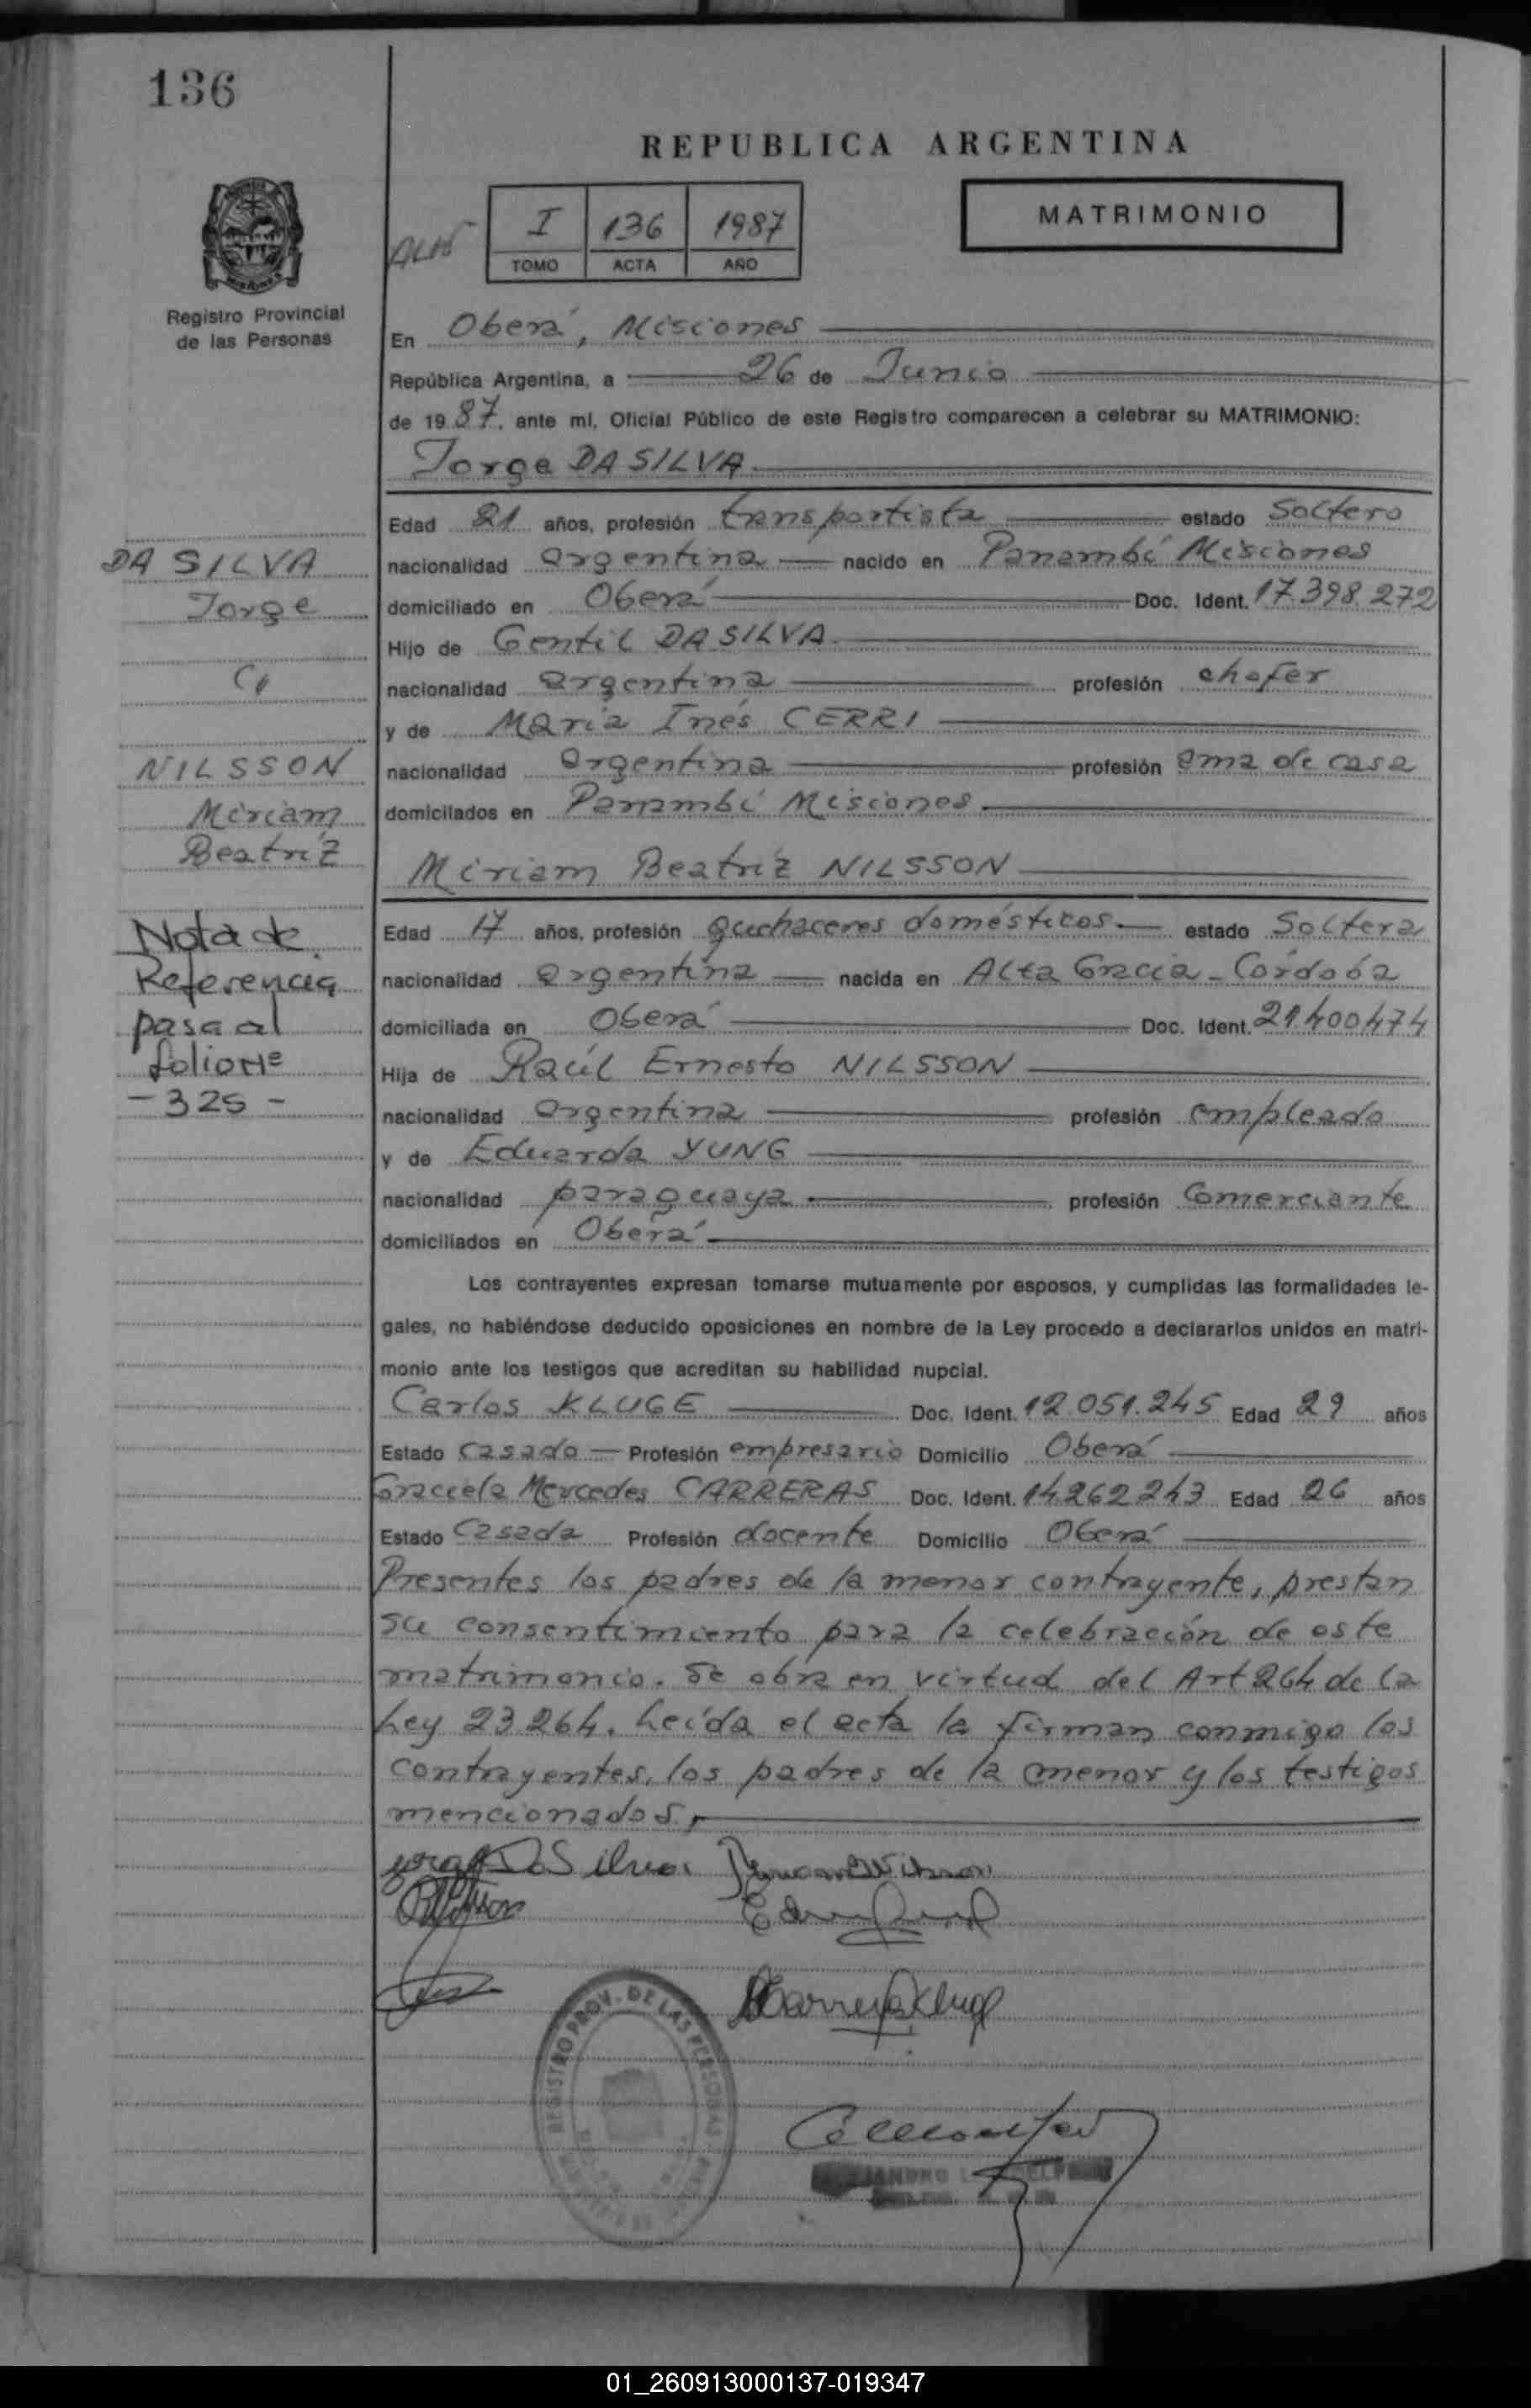 136
REPUBLICA ARGENTINA
I 136 1987
TOMO ACTA AÑO
MATRIMONIO
Registro Provincial
de las Personas
En Oberá, Misiones
República Argentina, a 26 de Junio
de 19 87, ante mi, Oficial Público de este Registro comparecen a celebrar su MATRIMONIO:
Jorge DA SILVA
Edad 21 años, profesión transportista estado Soltero
nacionalidad argentina nacido en Panambí Misiones
domiciliado en Oberá Doc. Ident. 17.398.272
Hijo de Gentil DA SILVA
nacionalidad argentina profesión chofer
y de María Inés CERRI
nacionalidad argentina profesión ama de casa
domicilados en Panambí Misiones
Miriam Beatríz NILSSON
Edad 17 años, profesión quehaceres domésticos estado Soltera
nacionalidad argentina nacida en Alta Gracia - Córdoba
domiciliada en Oberá Doc. Ident. 21.400.474
Hija de Raúl Ernesto NILSSON
nacionalidad argentina profesión empleado
y de Eduarda YUNG
nacionalidad paraguaya profesión Comerciante
domiciliados en Oberá
DA SILVA
Jorge
C/
NILSSON
Miriam
Beatríz
Nota de
Referencia
pasa al
folio Nº
- 325 -
Los contrayentes expresan tomarse mutuamente por esposos, y cumplidas las formalidades le-
gales, no habiéndose deducido oposiciones en nombre de la Ley procedo a declararlos unidos en matri-
monio ante los testigos que acreditan su habilidad nupcial.
Carlos KLUGE Doc. Ident. 12.051.245 Edad 29 años
Estado Casado Profesión empresario Domicilio Oberá
Graciela Mercedes CARRERAS Doc. Ident. 14.262.243 Edad 26 años
Estado Casada Profesión docente Domicilio Oberá
Presentes los padres de la menor contrayente, prestan
su consentimiento para la celebración de este
matrimonio. Se obra en virtud del Art 264 de la
Ley 23.264. Leída el acta la firman conmigo los
contrayentes, los padres de la menor y los testigos
mencionados.
REGISTRO PROV. DE LAS PERSONAS
01_260913000137-019347